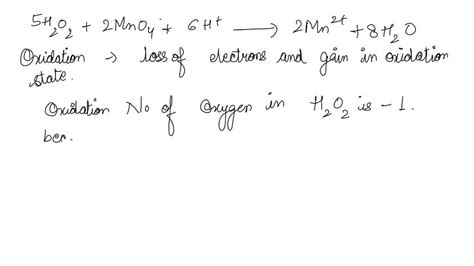 5H₂O₂ + 2MnO₄⁻ + 6H⁺ ⟶ 2Mn²⁺ + 8H₂O
Oxidation → loss of electrons and gain in oxidation
state.
Oxidation No of Oxygen in H₂O₂ is -1.
bec